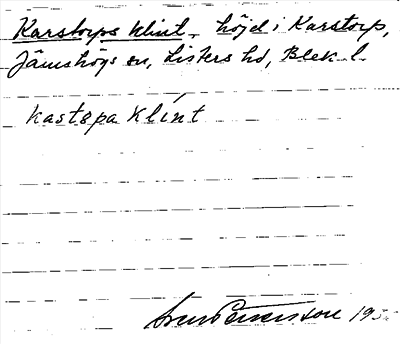 Karstorps klint, höjd i Karstorp,
Jämshögs sn, Listers hd, Blek. l.
kastspa klint
Sven Benson 195